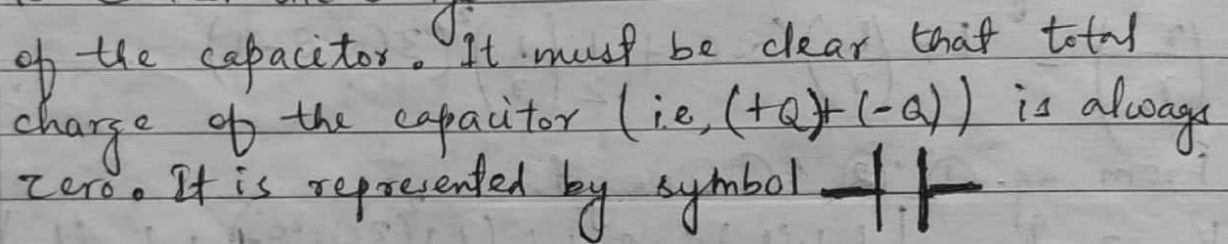 of the capacitor. It must be clear that total
charge of the capacitor (i.e, (+Q)+(-Q)) is always
zero. It is represented by symbol